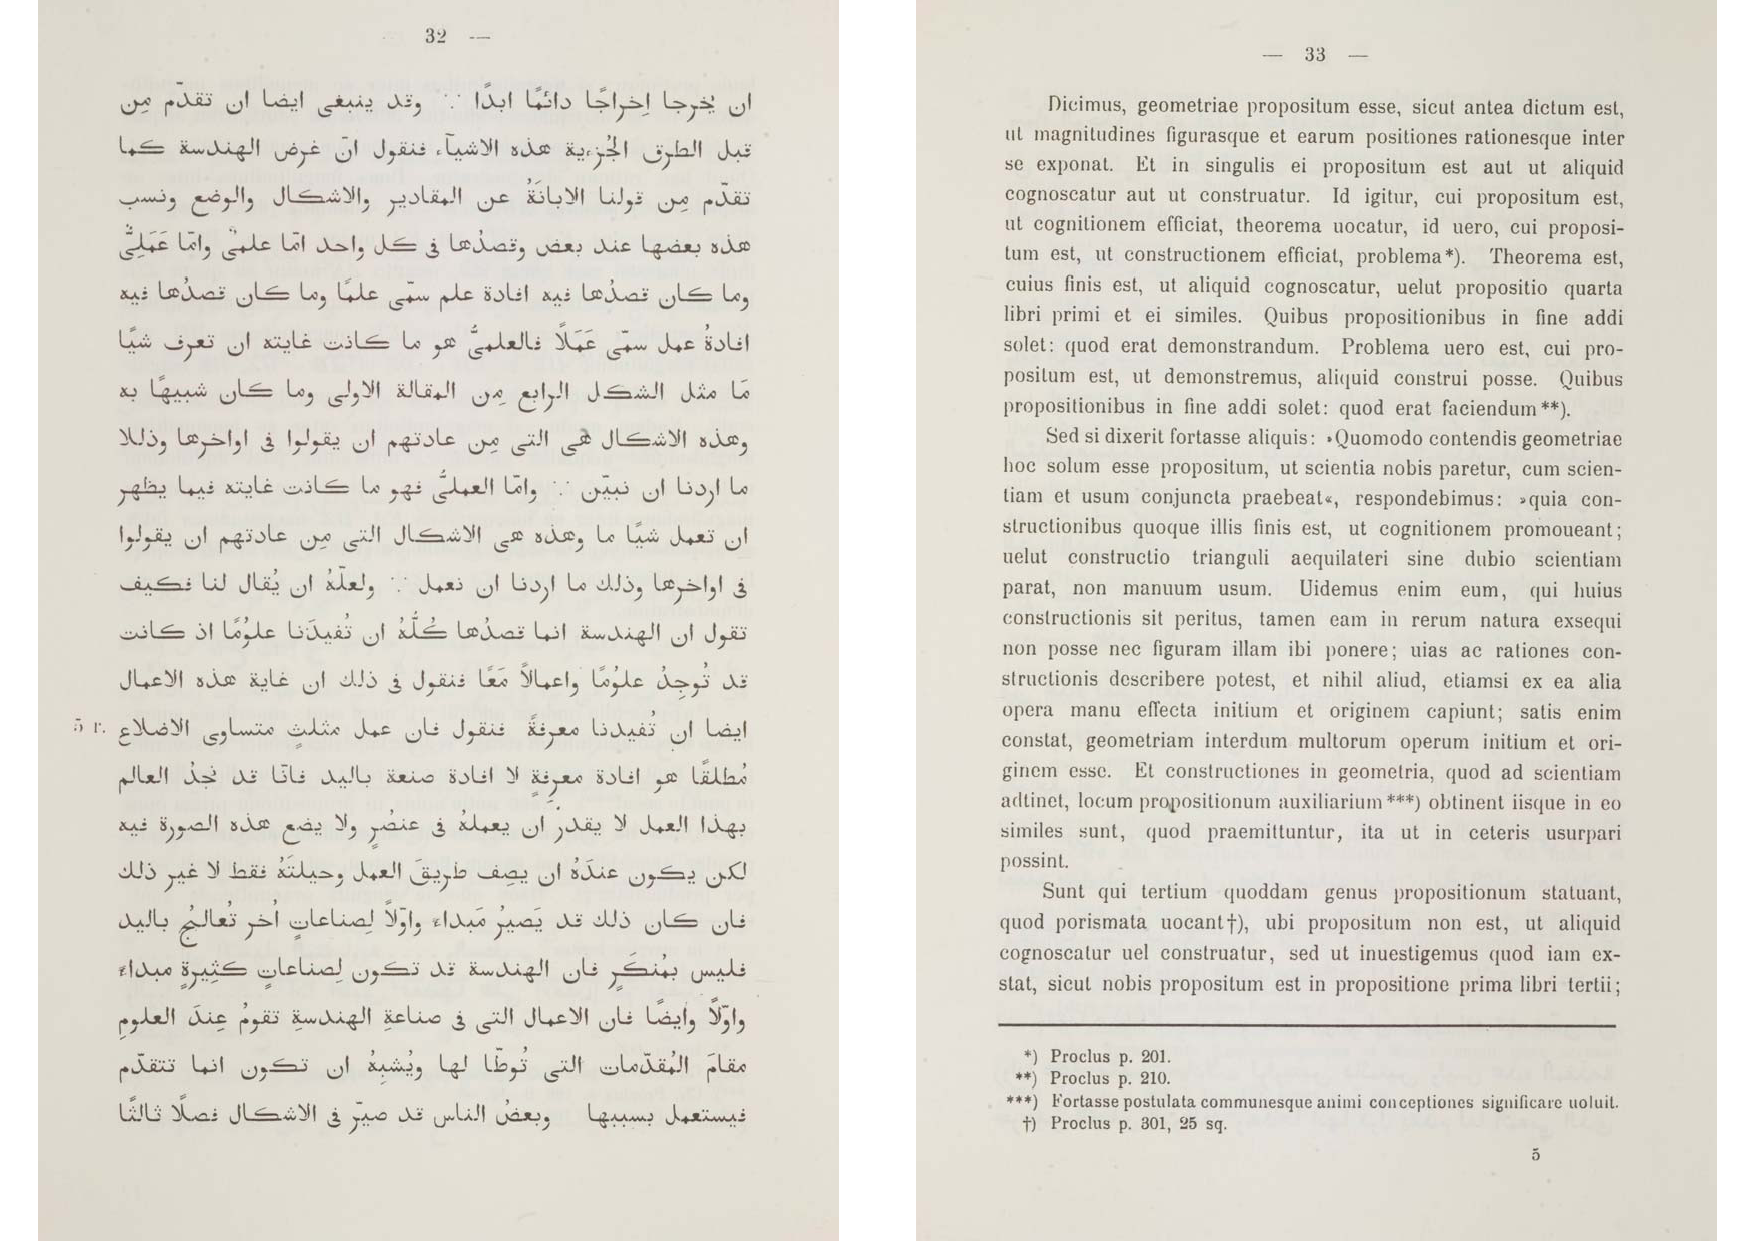 32 —
ان يُخرجا اِخراجًا دائمًا ابدًا ∵ وقد ينبغى ايضا ان تقدّم مِن
قبل الطرق الجُزءية هذه الاشيآء فنقول انّ غرض الهندسة كما
تقدّم مِن قولنا الابانَةُ عن المقادير والاشكال والوضع ونسب
هذه بعضها عند بعض وقصدُها فى كل واحد امّا علمىٌّ وامّا عَمَلِىٌّ
وما كان قصدُها فيه افادة علم سمّى علمًا وما كان قصدُها فيه
افادةُ عمل سمّى عَمَلًا فالعلمىُّ هو ما كانت غايته ان تعرف شيًا
مَا مثل الشكل الرابع مِن المقالة الاولى وما كان شبيهًا به
وهذه الاشكال هى التى مِن عادتهم ان يقولوا فى اواخرها وذلك
ما اردنا ان نبيّن ∵ وامّا العملىُّ فهو ما كانت غايته فيما يظهر
ان تعمل شيًا ما وهذه هى الاشكال التى مِن عادتهم ان يقولوا
فى اواخرها وذلك ما اردنا ان نعمل ∵ ولعلّهُ ان يُقال لنا فكيف
تقول ان الهندسة انما قصدُها كُلُّهُ ان تُفيدَنا علوُمًا اذ كانت
قد تُوجِدُ علوُمًا واعمالاً مَعًا فنقول فى ذلك ان غاية هذه الاعمال
5 r. ايضا ان تُفيدنا معرفةً فنقول فان عمل مثلثٍ متساوى الاضلاع
مُطلقًا هو افادة معرفةٍ لا افادة صنعة باليد فانّا قد نجدُ العالم
بهذا العمل لا يقدر ان يعملهُ فى عنصُرٍ ولا يضع هذه الصورة فيه
لكن يكون عندَهُ ان يصِف طريقَ العمل وحيلتَهُ فقط لا غير ذلك
فان كان ذلك قد يَصيرُ مَبداء واوّلاً لِصناعاتٍ اُخر تُعالجُ باليد
فليس بمُنكَرٍ فان الهندسة قد تكون لِصناعاتٍ كثيرةٍ مبداء
واوّلاً وايضًا فان الاعمال التى فى صناعةِ الهندسةِ تقومُ عِندَ العلومِ
مقامَ المُقدّمات التى تُوطّا لها ويُشبِهُ ان تكون انما تتقدّم
فيستعمل بسببها وبعضُ الناس قد صيّر فى الاشكال فصلًا ثالثًا
— 33 —
Dicimus, geometriae propositum esse, sicut antea dictum est,
ut magnitudines figurasque et earum positiones rationesque inter
se exponat. Et in singulis ei propositum est aut ut aliquid
cognoscatur aut ut construatur. Id igitur, cui propositum est,
ut cognitionem efficiat, theorema uocatur, id uero, cui proposi-
tum est, ut constructionem efficiat, problema*). Theorema est,
cuius finis est, ut aliquid cognoscatur, uelut propositio quarta
libri primi et ei similes. Quibus propositionibus in fine addi
solet: quod erat demonstrandum. Problema uero est, cui pro-
positum est, ut demonstremus, aliquid construi posse. Quibus
propositionibus in fine addi solet: quod erat faciendum**).
Sed si dixerit fortasse aliquis: »Quomodo contendis geometriae
hoc solum esse propositum, ut scientia nobis paretur, cum scien-
tiam et usum conjuncta praebeat«, respondebimus: »quia con-
structionibus quoque illis finis est, ut cognitionem promoueant;
uelut constructio trianguli aequilateri sine dubio scientiam
parat, non manuum usum. Uidemus enim eum, qui huius
constructionis sit peritus, tamen eam in rerum natura exsequi
non posse nec figuram illam ibi ponere; uias ac rationes con-
structionis describere potest, et nihil aliud, etiamsi ex ea alia
opera manu effecta initium et originem capiunt; satis enim
constat, geometriam interdum multorum operum initium et ori-
ginem esse. Et constructiones in geometria, quod ad scientiam
adtinet, locum propositionum auxiliarium***) obtinent iisque in eo
similes sunt, quod praemittuntur, ita ut in ceteris usurpari
possint.
Sunt qui tertium quoddam genus propositionum statuant,
quod porismata uocant†), ubi propositum non est, ut aliquid
cognoscatur uel construatur, sed ut inuestigemus quod iam ex-
stat, sicut nobis propositum est in propositione prima libri tertii;
*) Proclus p. 201.
**) Proclus p. 210.
***) Fortasse postulata communesque animi conceptiones significare uoluit.
†) Proclus p. 301, 25 sq.
5